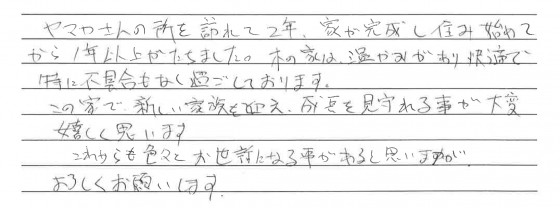 ヤマカさんの所を訪れて2年、家が完成し住み始めて
から1年以上がたちました。木の家は、温かみがあり快適で
特に不具合もなく過ごしております。
この家で、新しい家族を迎え、成長を見守れる事が大変
嬉しく思います
これからも色々とお世話になる事があると思いますが、
よろしくお願いします。